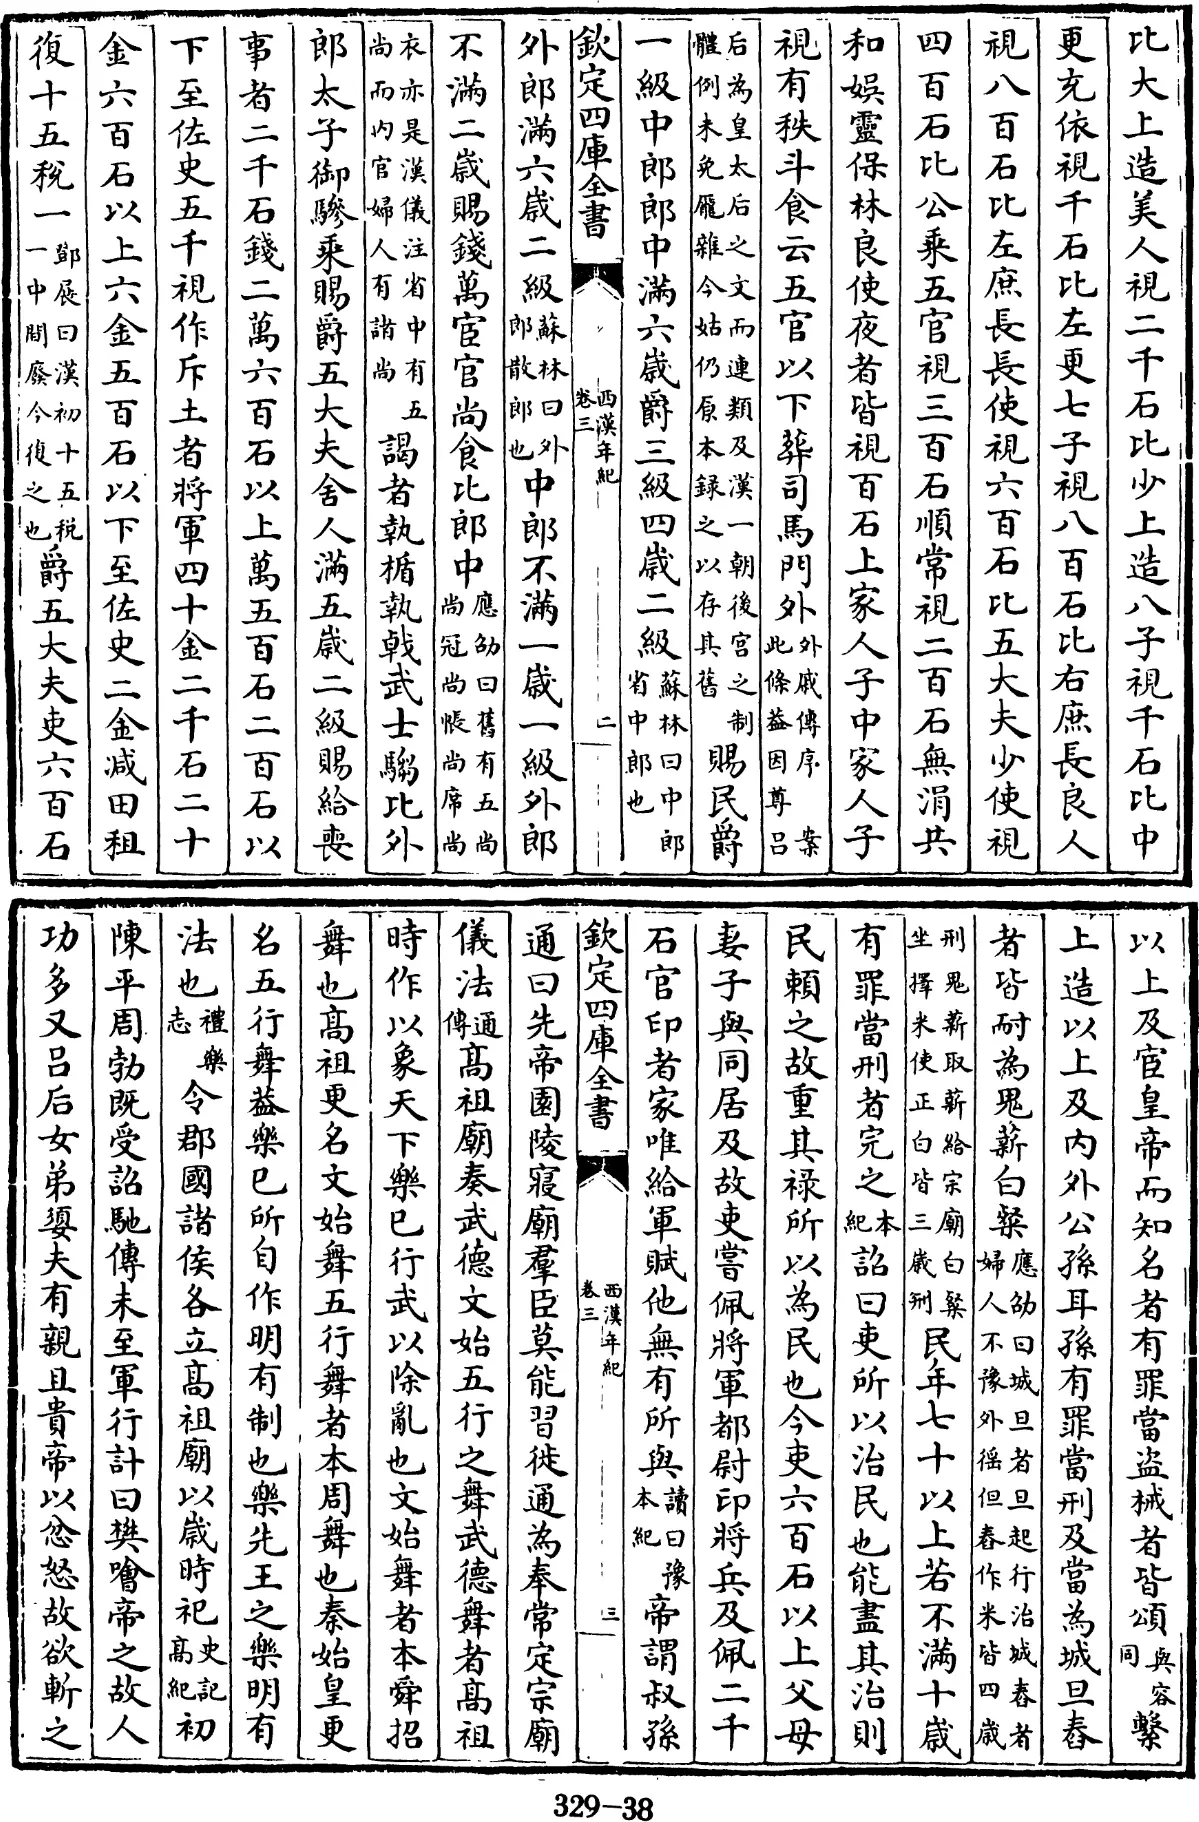 比大上造美人視二千石比少上造八子視千石比中
更充依視千石比左更七子視八百石比右庶長良人
視八百石比左庶長長使視六百石比五大夫少使視
四百石比公乘五官視三百石順常視二百石無涓共
和娛靈保林良使夜者皆視百石上家人子中家人子
視有秩斗食云五官以下葬司馬門外外戚傳序案此條蓋因尊吕
后為皇太后之文而連類及漢一朝後宫之制體例未免龎雜今姑仍原本録之以存其舊賜民爵
一級中郎郎中滿六歲爵三級四歲二級蘇林曰中郎省中郎也
欽定四庫全書 西漢年紀卷三 二
外郎滿六歲二級蘇林曰外郎散郎也中郎不滿一歲一級外郎
不滿二歲賜錢萬宦官尚食比郎中應劭曰舊有五尚尚冠尚帳尚席尚
衣亦是漢儀注省中有五尚而内官婦人有諸尚謁者執楯執戟武士騶比外
郎太子御驂乘賜爵五大夫舍人滿五歲二級賜給喪
事者二千石錢二萬六百石以上萬五百石二百石以
下至佐史五千視作斥土者將軍四十金二千石二十
金六百石以上六金五百石以下至佐史二金减田租
復十五稅一鄧展曰漢初十五稅一中間廢今復之也爵五大夫吏六百石
以上及宦皇帝而知名者有罪當盗械者皆頌與容同繫
上造以上及内外公孫耳孫有罪當刑及當為城旦舂
者皆耐為鬼薪白粲應劭曰城旦者旦起行治城舂者婦人不豫外徭但舂作米皆四歲
刑鬼薪取薪給宗廟白粲坐擇米使正白皆三歲刑民年七十以上若不滿十歲
有罪當刑者完之本紀詔曰吏所以治民也能盡其治則
民賴之故重其禄所以為民也今吏六百石以上父母
妻子與同居及故吏嘗佩將軍都尉印將兵及佩二千
石官印者家唯給軍賦他無有所與讀曰豫本紀帝謂叔孫
欽定四庫全書 西漢年紀卷三 三
通曰先帝園陵寢廟羣臣莫能習徙通為奉常定宗廟
儀法通傳髙祖廟奏武德文始五行之舞武德舞者髙祖
時作以象天下樂已行武以除亂也文始舞者本舜招
舞也髙祖更名文始舞五行舞者本周舞也秦始皇更
名五行舞蓋樂已所自作明有制也樂先王之樂明有
法也禮樂志令郡國諸侯各立髙祖廟以歲時祀史記髙紀初
陳平周勃既受詔馳傳未至軍行計曰樊噲帝之故人
功多又吕后女弟嬃夫有親且貴帝以忿怒故欲斬之
329-38